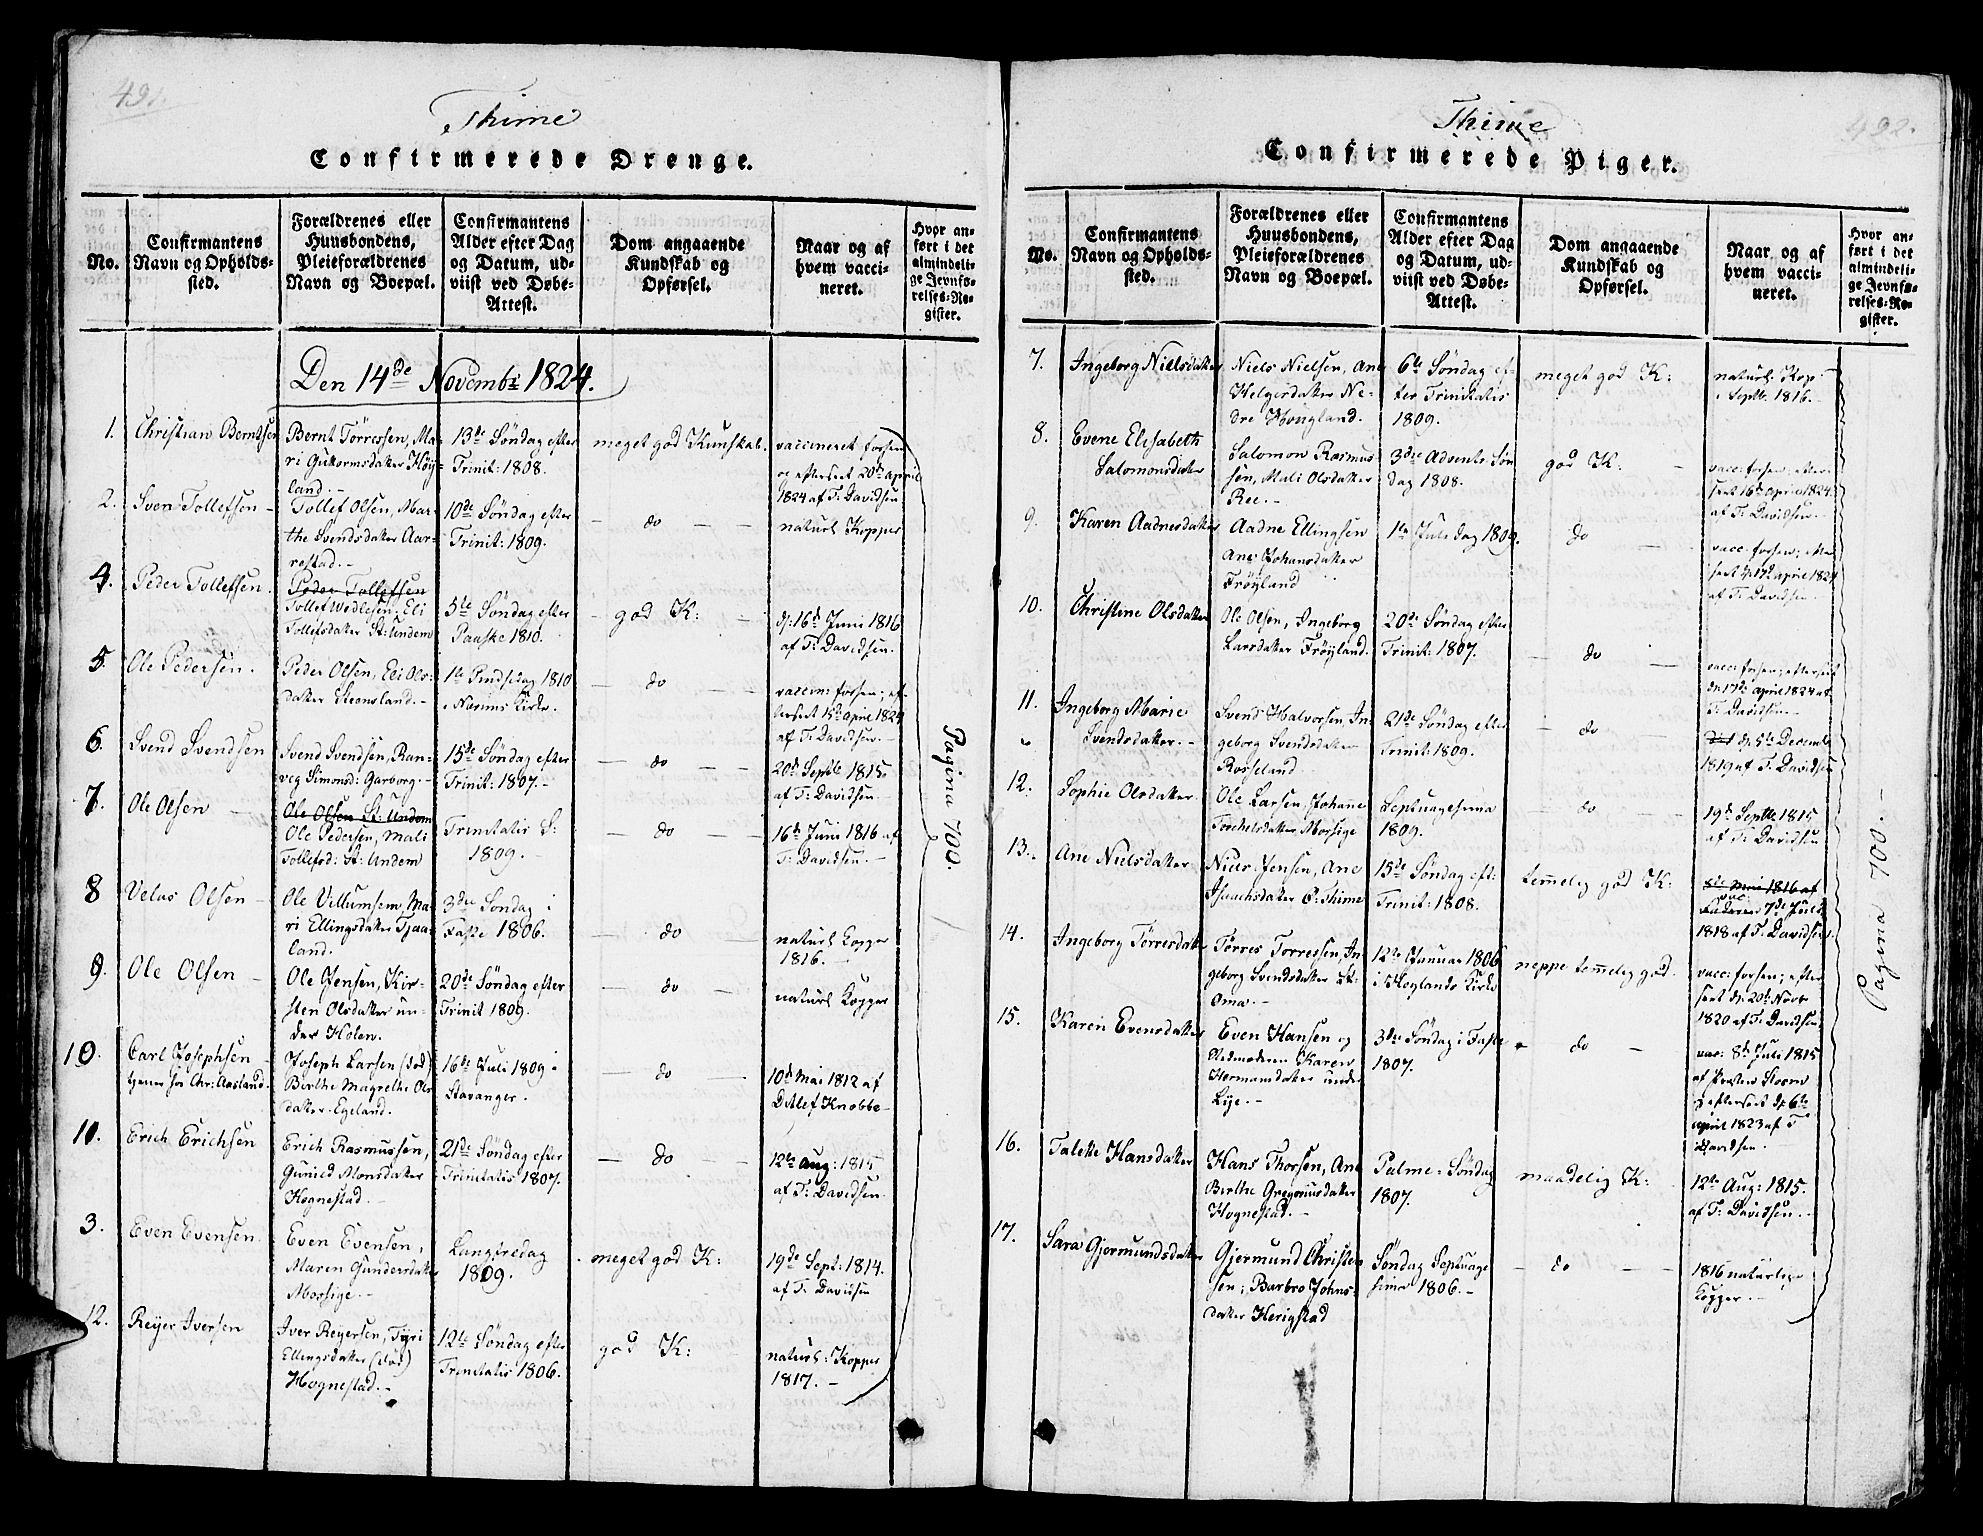 491.
Thime
Confirmerede Drenge.
No.
Confirmantens
Navn og Opholds-
sted.
Forældrenes eller
Huusbondens,
Pleieforældrenes
Navn og Boepæl.
Confirmantens
Alder efter Dag
og Datum, ud-
viist ved Døbe-
Attest.
Dom angaaende
Kundskab og
Opførsel.
Naar og af
hvem vacci-
neret.
Hvor an-
ført i det
almindeli-
ge Jevnfø-
relses-Re-
gister.
Den 14de Novembr 1824.
1.
Christian Berntsen
Bernt Törressen, Ma-
ri Guttormsdatter Høy-
land.-
13de Søndag efter
Trinit: 1808.
meget god Kunskab.
vaccineret forsen
og efterseet 20de april
1824 af T: Davidsen
2.
Sven Tollefsen -
Tollef Olsen, Mar-
the Svendsdatter Aar-
restad.-
10de Søndag efter
Trinit: 1809.
- do - -
naturl Kopper
4.
Peder Tollefsen.
Peder Tollefsen
Tollef Wedlesen, Eli
Tollefsdatter St: Undem
5te Søndag efter
Paaske 1810.
- god K: -
d: 16d Juni 1816
af T: Davidsen.
5
Ole Pedersen.
Peder Olsen, Eli Ols-
datter Steensland.-
1te Pindsedag 1810
i Nærims Kirke.
- do - -
vaccin: forsen; ef-
terseet 15de april 1824
af T: Davidsen.-
6.
Svend Svendsen
Svend Svendsen, Ran-
veg Simonsd: Garborg.-
15de Søndag efter
Trinit: 1807.-
- do - -
20de Septb 1815
af T: Davidsen
7.
Ole Olsen -
Ole Olsen St: Undem
Ole Pedersen, Mali
Tollefsd: St: Undem
Trinitatis S:
1809.-
- do - -
16de Juni 1816 af
T: Davidsen.-
8
Velas Olsen -
Ole Villumsen, Ma-
ri Ellingsdatter Tjaa-
land.
3die Søndag i
Faste 1806.
- do -
naturl Kopper
1816.-
9.
Ole Olsen -
Ole Jensen, Kir-
sten Olsdatter un-
der Holen.
20de Søndag efter
Trinit 1809.
- do -
naturl Kopper
10.
Carl Josephsen -
tjener hos Chr: Aasland.
Joseph Larsen (død)
Birthe Magrethe Ols-
datter Egeland.
16de Juli 1809 i
Stavanger.
- do -
10d Mai 1812 af
Ditlef Knobbe-
11.
Erich Erichsen
Erich Rasmussen,
Gunild Monsdatter
Hognestad.-
21de Søndag efter
Trinitatis 1807.
- do -
12te Aug: 1815
af T: Davidsen.
3.
Even Evensen.
Even Evensen,
Maren Gundersdatter
Mossige.-
Langfredag
1809.
- meget god K:
19de Sept: 1814.
af T: Davidsen
12.
Reyer Iversen
Iver Reyersen, Tyri
Ellingsdatter (død)
Hognestad.-
12te Søndag efter
Trinitatis 1806.
god K: -
naturl: Kopper
1817.-
Pagina 700.
492.
Thime
Confirmerede Piger.
No.
Confirmantens
Navn og Opholds-
sted.
Forældrenes eller
Huusbondens,
Pleieforældrenes
Navn og Boepæl.
Confirmantens
Alder efter Dag
og Datum, ud-
viist ved Døbe-
Attest.
Dom angaaende
Kundskab og
Opførsel.
Naar og af
hvem vacci-
neret.
Hvor an-
ført i det
almindeli-
ge Jevnfø-
relses-Re-
gister.
7.
Ingeborg Nielsdatter
Niels Nielsen, Ane
Helgesdatter Ne-
dre Hougland.
6te Søndag ef-
ter Trinitatis
1809.
meget god K:
naturl: Kop:
i Septb 1816.-
8.
Evene Elisabeth
Salomonsdatter
Salomon Rasmus-
sen, Mali Olsdatter
Ree.-
3die Advents Søn
dag 1808.
god K: -
vacc: forsen; efter-
seet 16de april 1824.
af T: Davidsen.-
9.
Karen Aadnesdatter
Aadne Ellingsen
Ane Johansdatter
Frøyland
1te Juledag 1809.
do -
vacc: forsen; efter
seet d. 17d april 1824
af T: Davidsen.
10.
Christine Olsdatter
Ole Olsen, Ingeborg
Larsdatter Frøyland.
20de Søndag efter
Trinit: 1807.
- do -
vacc: forsen; efterseet
d. 17de april 1824 af
T: Davidsen-
11.
Ingeborg Marie
Svendsdatter.-
Svend Halvorsen, In-
geborg Svendsdatter
Rosseland.
21de Søndag efter
Trinit: 1809.
- do
d. 5te Decemb
1819 af T: Davidsen
12.
Sophie Olsdatter
Ole Larsen, Johane
Torchelsdatter, Mossige
Septuagesima
1809.
do -
19de Septb 1815
af T: Davidsen
13.
Ane Nielsdatter
Niels Jensen, Ane
Isaachsdatter O: Thime
15de Søndag eft:
Trinit: 1808.
temelig god K:
Mai 1816 af
vac:
7de Juli
1818 af T: Davidsen.
14.
Ingeborg Tørresdatter
Tørres Torressen, In-
geborg Svendsdatter St:
Oma.-
12te Januar 1806
i Høglands Kirke
neppe temelig god.
vacc: forsen; efter
seet d. 20de Novb
1820 af T: Davidsen.
15.
Karen Evensdatter
Even Hansen og
Stedmoderen Karen
Hermansdatter under
Lye.-
3die Søndag i Faste
1807.
do -
vac: 8de Juli 1815
af Præsten Storm
efterseet d. 6te
april 1823 af T
Davidsen.
16.
Talette Hansdatter
Hans Thorsen, Ane
Birthe Gregoriusdatter
Hognestad.-
Palme-Søndag
1807.
maadelig K:
12te Aug: 1815.
af T: Davidsen.-
17.
Sara Gjermundsdatter
Gjermund Christen
sen; Barbro Johns-
datter Herigstad
Søndag Septuage
sima 1806.-
- do - -
1816 naturlige
Kopper.-
Pagina 700.-